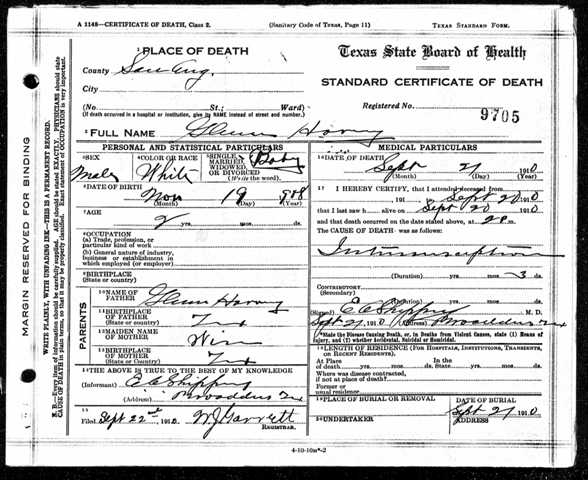 A 1148—CERTIFICATE OF DEATH, Class 2. (Sanitary Code of Texas, Page 11) TEXAS STANDARD FORM.
MARGIN RESERVED FOR BINDING
WRITE PLAINLY, WITH UNFADING INK—THIS IS A PERMANENT RECORD.
N. B.—Every item of information should be carefully supplied. AGE should be stated EXACTLY. PHYSICIANS should state
CAUSE OF DEATH in plain terms, so that it may be properly classified. Exact statement of OCCUPATION is very important.
1 PLACE OF DEATH
County San Aug.
City
(No St.; Ward)
(If death occurred in a hospital or institution, give its NAME instead of street and number.)
Texas State Board of Health
STANDARD CERTIFICATE OF DEATH
Registered No. 9705
2 FULL NAME Glenn
PERSONAL AND STATISTICAL PARTICULARS
3 SEX
Male
4 COLOR OR RACE
White
5 SINGLE, MARRIED, WIDOWED, OR DIVORCED
(Write the word).
Baby
6 DATE OF BIRTH
Nov 19 908
(Month) (Day) (Year)
7 AGE
2 yrs. mos. ds.
8 OCCUPATION
(a) Trade, profession, or
particular kind of work
(b) General nature of industry,
business or establishment in
which employed (or employer)
9 BIRTHPLACE
(State or country)
PARENTS
10 NAME OF
FATHER Glenn
11 BIRTHPLACE
OF FATHER
(State or country) Tex
12 MAIDEN NAME
OF MOTHER
13 BIRTHPLACE
OF MOTHER
(State or Country) Tex
14 THE ABOVE IS TRUE TO THE BEST OF MY KNOWLEDGE
(Informant)
(Address) Broaddus Tex
15
Filed Sept 22nd 1910. WJ Garrett
REGISTRAR.
MEDICAL PARTICULARS
16 DATE OF DEATH
Sept 21 1910
(Month) (Day) (Year)
17 I HEREBY CERTIFY, that I attended deceased from
191 Sept 20 1910
that I last saw h alive on Sept 20 1910
and that death occurred on the date stated above, at m.
The CAUSE OF DEATH was as follows:
Intussusception
(Duration) yrs. mos. 3 ds.
CONTRIBUTORY
(Secondary)
(Duration) yrs. mos. ds.
(Signed) M. D.
Sept 21, 1910 (Address) Broaddus Tex
*State the Disease Causing Death, or, in Deaths from Violent Causes, state (1) Means of
Injury, and (2) whether Accidental, Suicidal or Homicidal.
18 LENGTH OF RESIDENCE (FOR HOSPITALS, INSTITUTIONS, TRANSIENTS,
OR RECENT RESIDENTS).
At Place In the
of death yrs. mos. ds. State yrs. mos. ds.
Where was disease contracted,
if not at place of death?
Former or
usual residence
19 PLACE OF BURIAL OR REMOVAL
DATE OF BURIAL
Sept 21 1910
20 UNDERTAKER
ADDRESS
4-10-10m*-2